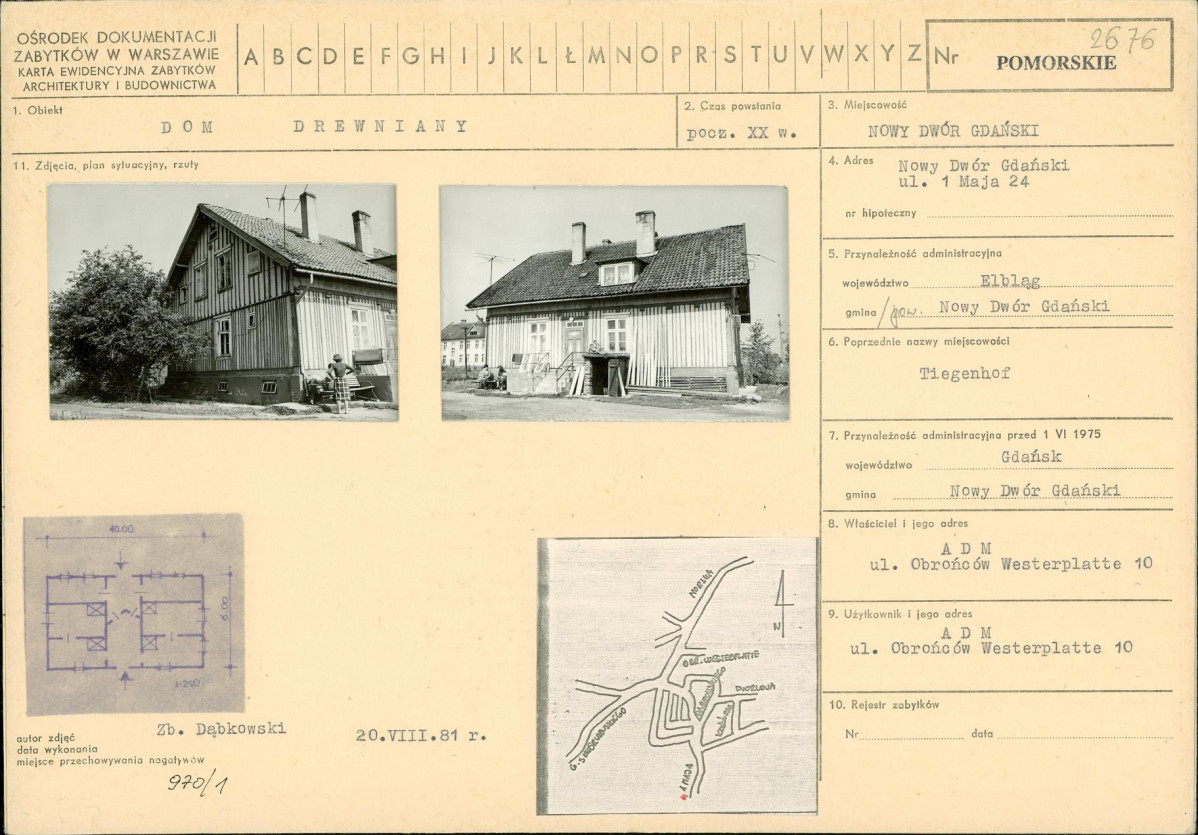 OŚRODEK DOKUMENTACJI
ZABYTKÓW W WARSZAWIE
KARTA EWIDENCYJNA ZABYTKÓW
ARCHITEKTURY I BUDOWNICTWA
A B C D E F G H I J K L Ł M N O P R S T U V W X Y Z
Nr
2676
POMORSKIE
1. Obiekt
DOM DREWNIANY
2. Czas powstania
pocz. XX w.
3. Miejscowość
NOWY DWÓR GDAŃSKI
4. Adres
Nowy Dwór Gdański
ul. 1 Maja 24
nr hipoteczny
5. Przynależność administracyjna
województwo Elbląg
gmina /pow. Nowy Dwór Gdański
6. Poprzednie nazwy miejscowości
Tiegenhof
7. Przynależność administracyjna przed 1 VI 1975
województwo Gdańsk
gmina Nowy Dwór Gdański
8. Właściciel i jego adres
A D M
ul. Obrońców Westerplatte 10
9. Użytkownik i jego adres
A D M
ul. Obrońców Westerplatte 10
10. Rejestr zabytków
Nr data
11. Zdjęcia, plan sytuacyjny, rzuty
40.00
6.00
1:250
MORSKA
N
OBR. WESTERPLATTE
DWORCOWA
1 MAJA
autor zdjęć
data wykonania
miejsce przechowywania negatywów
Zb. Dąbkowski
20.VIII.81 r.
970/1